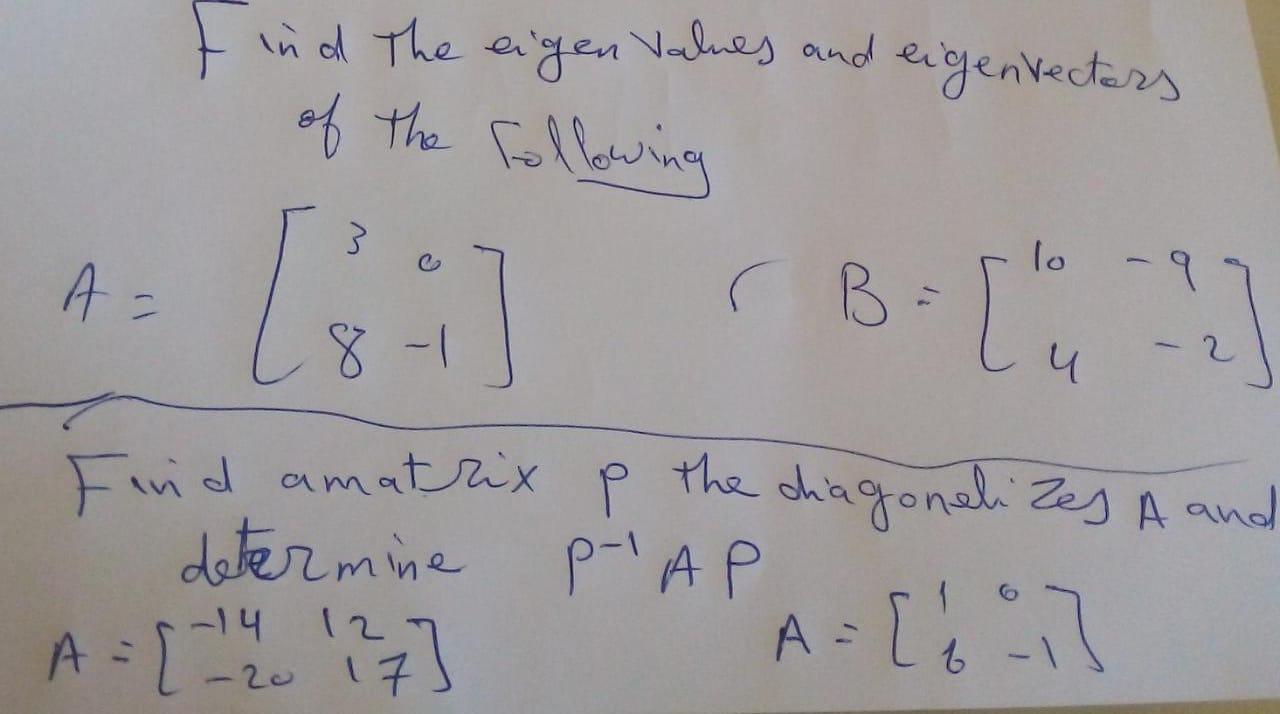 Find The eigen Values and eigenvectors
of the Following
A = [ 3 0
8 -1 ] , B = [ 10 -9
4 -2 ]
Find amatrix p the diagonalizes A and
determine p-1 A P
A = [ -14 12
-20 17 ] A = [ 1 0
6 -1 ]